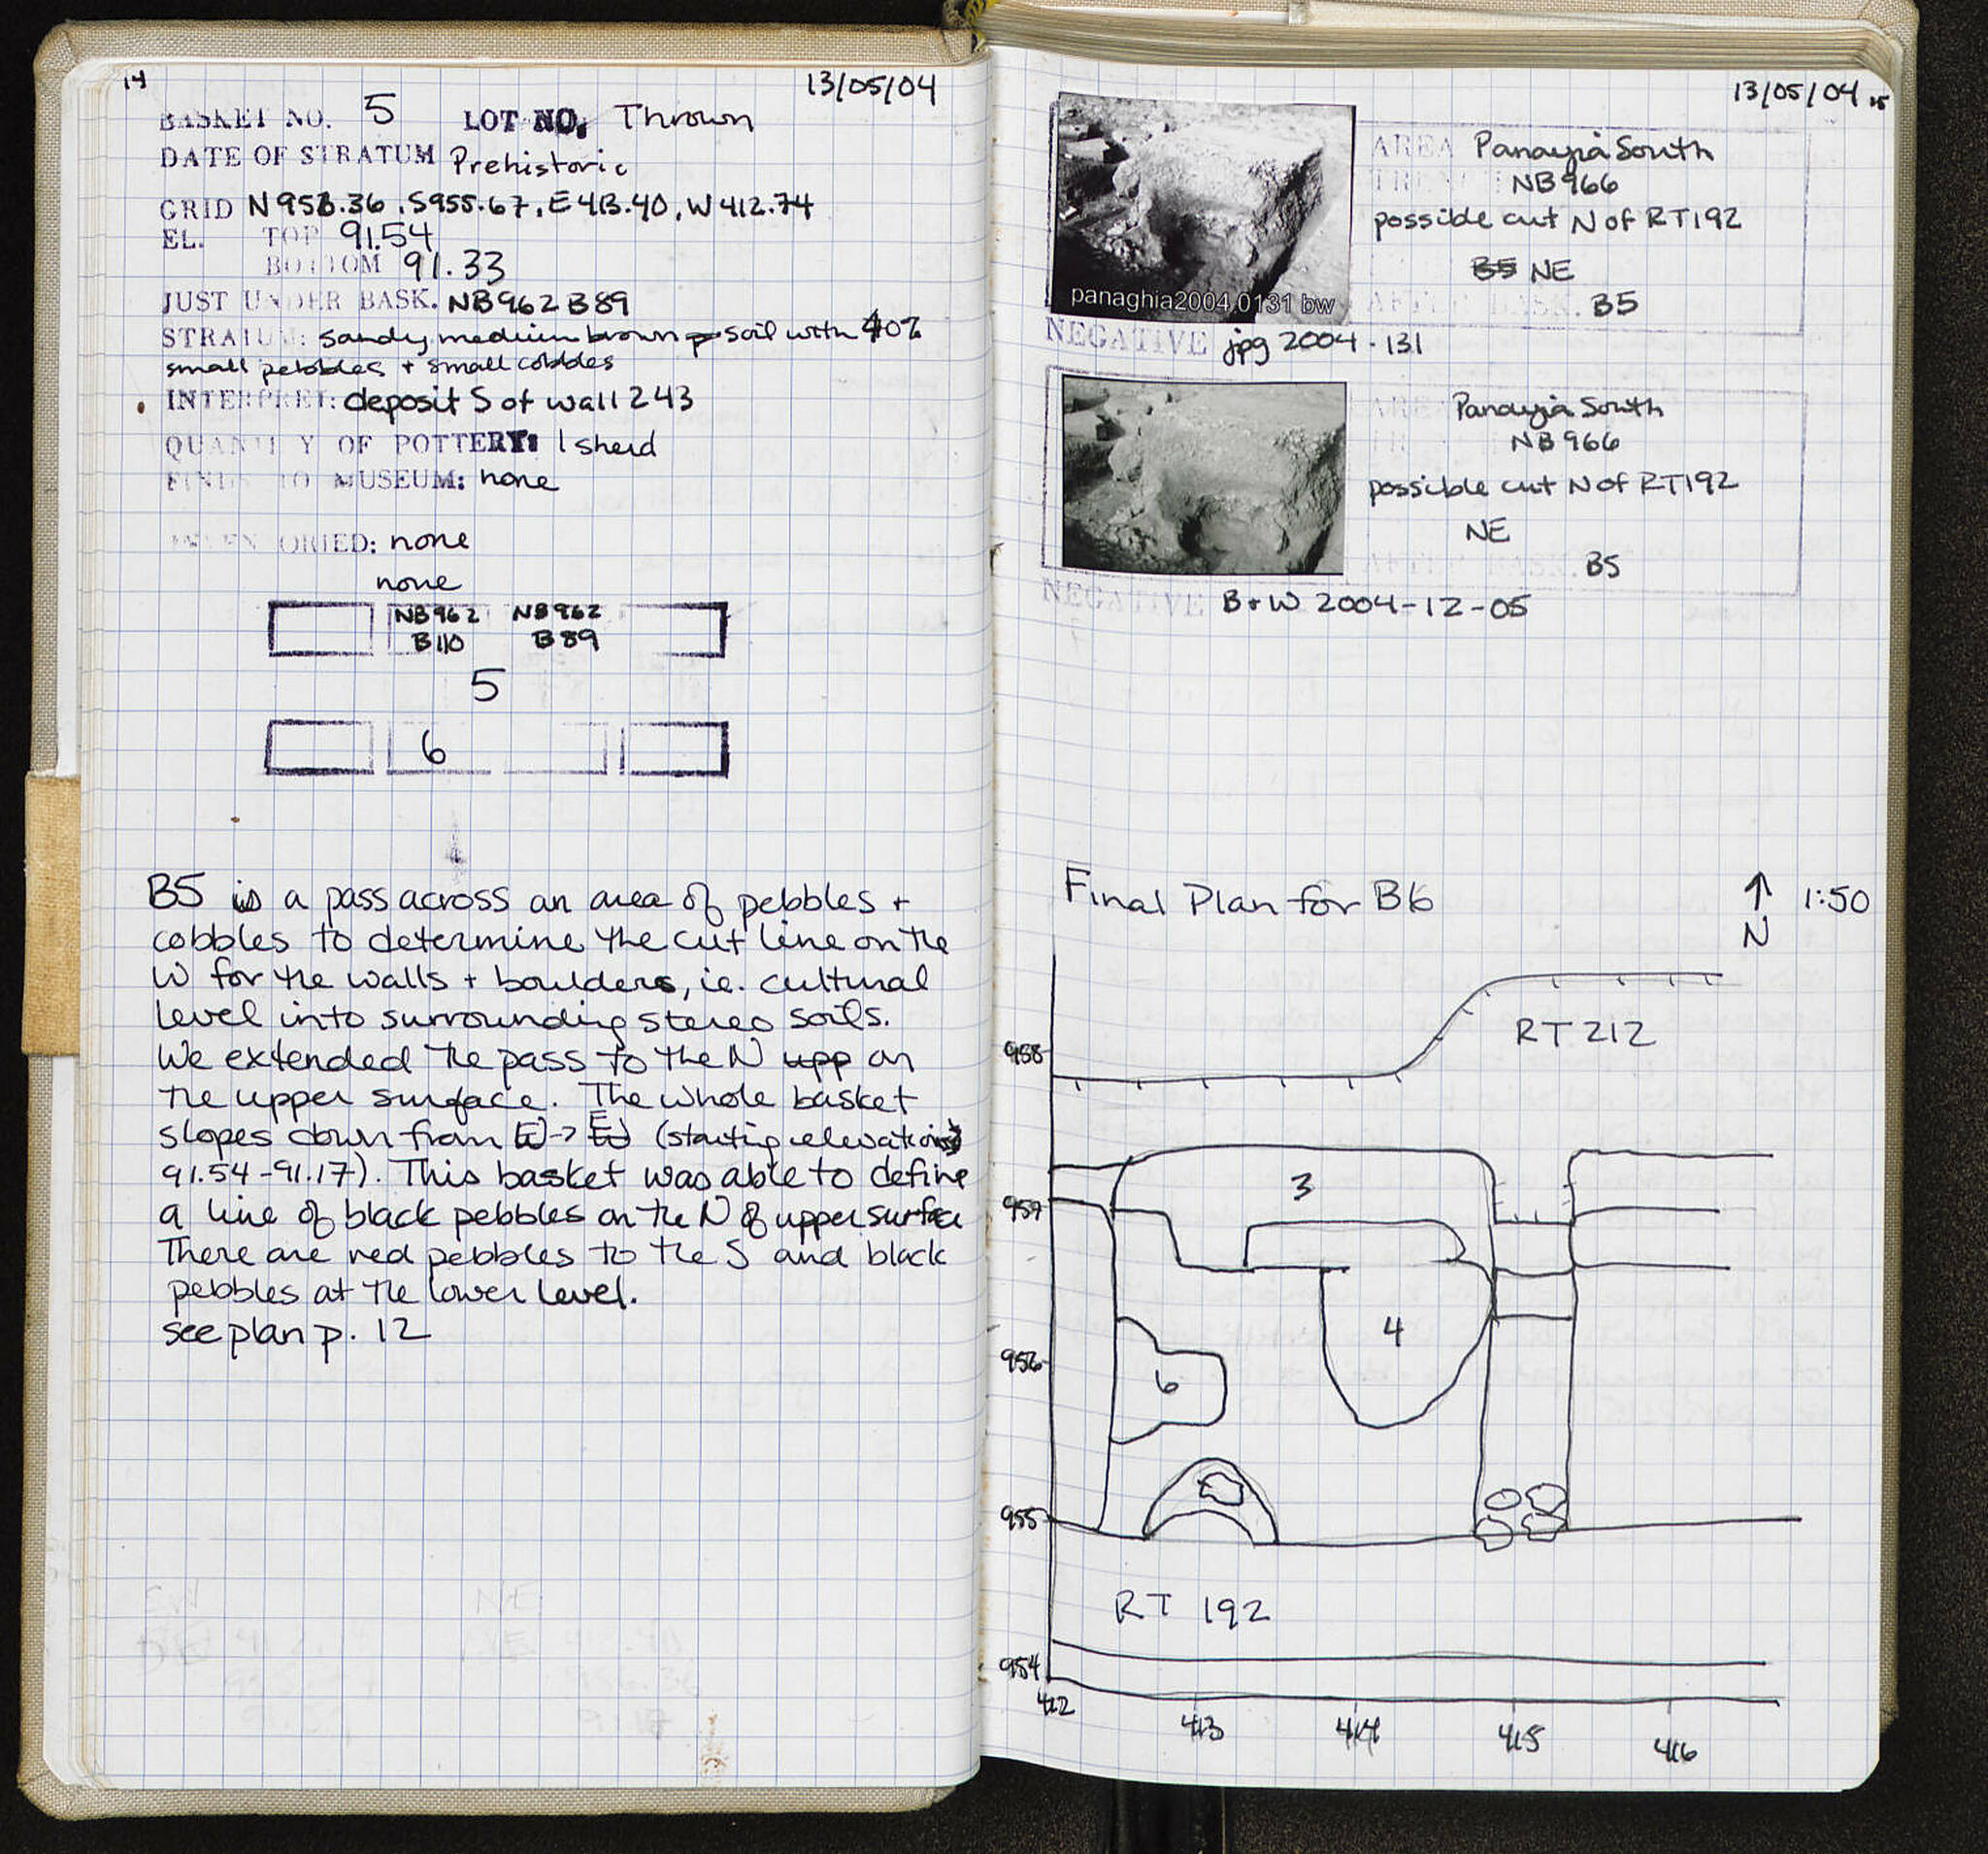 14
13/05/04
BASKET NO. 5 LOT NO. Thrown
DATE OF STRATUM Prehistoric
GRID N956.36, S955.67, E413.40, W412.74
EL. TOP 91.54
BOTTOM 91.33
JUST UNDER BASK. NB962 B89
STRATUM: sandy medium brown soil with 40%
small pebbles + small cobbles
INTERPRET: deposit S of wall 243
QUANTITY OF POTTERY: 1 sherd
FINDS TO MUSEUM: none
INVENTORIED: none
none
NB962 NB962
B110 B89
5
6
B5 is a pass across an area of pebbles +
cobbles to determine the cut line on the
W for the walls + boulders, i.e. cultural
level into surrounding stereo soils.
We extended the pass to the N upp on
the upper surface. The whole basket
slopes down from (starting elevations
91.54-91.17). This basket was able to define
a line of black pebbles on the N of upper surface
There are red pebbles to the S and black
pebbles at the lower level.
see plan p. 12
13/05/04 15
AREA Panayia South
TRENCH NB966
possible cut N of RT192
B5 NE
AFTER BASK. B5
panaghia2004 0131 bw
NEGATIVE jpg 2004-131
AREA Panayia South
TRENCH NB966
possible cut N of RT192
NE
AFTER BASK. B5
NEGATIVE B+W 2004-12-05
Final Plan for B6
N
1:50
RT 212
958
3
957
4
956
6
955
RT 192
954
412
413
414
415
416